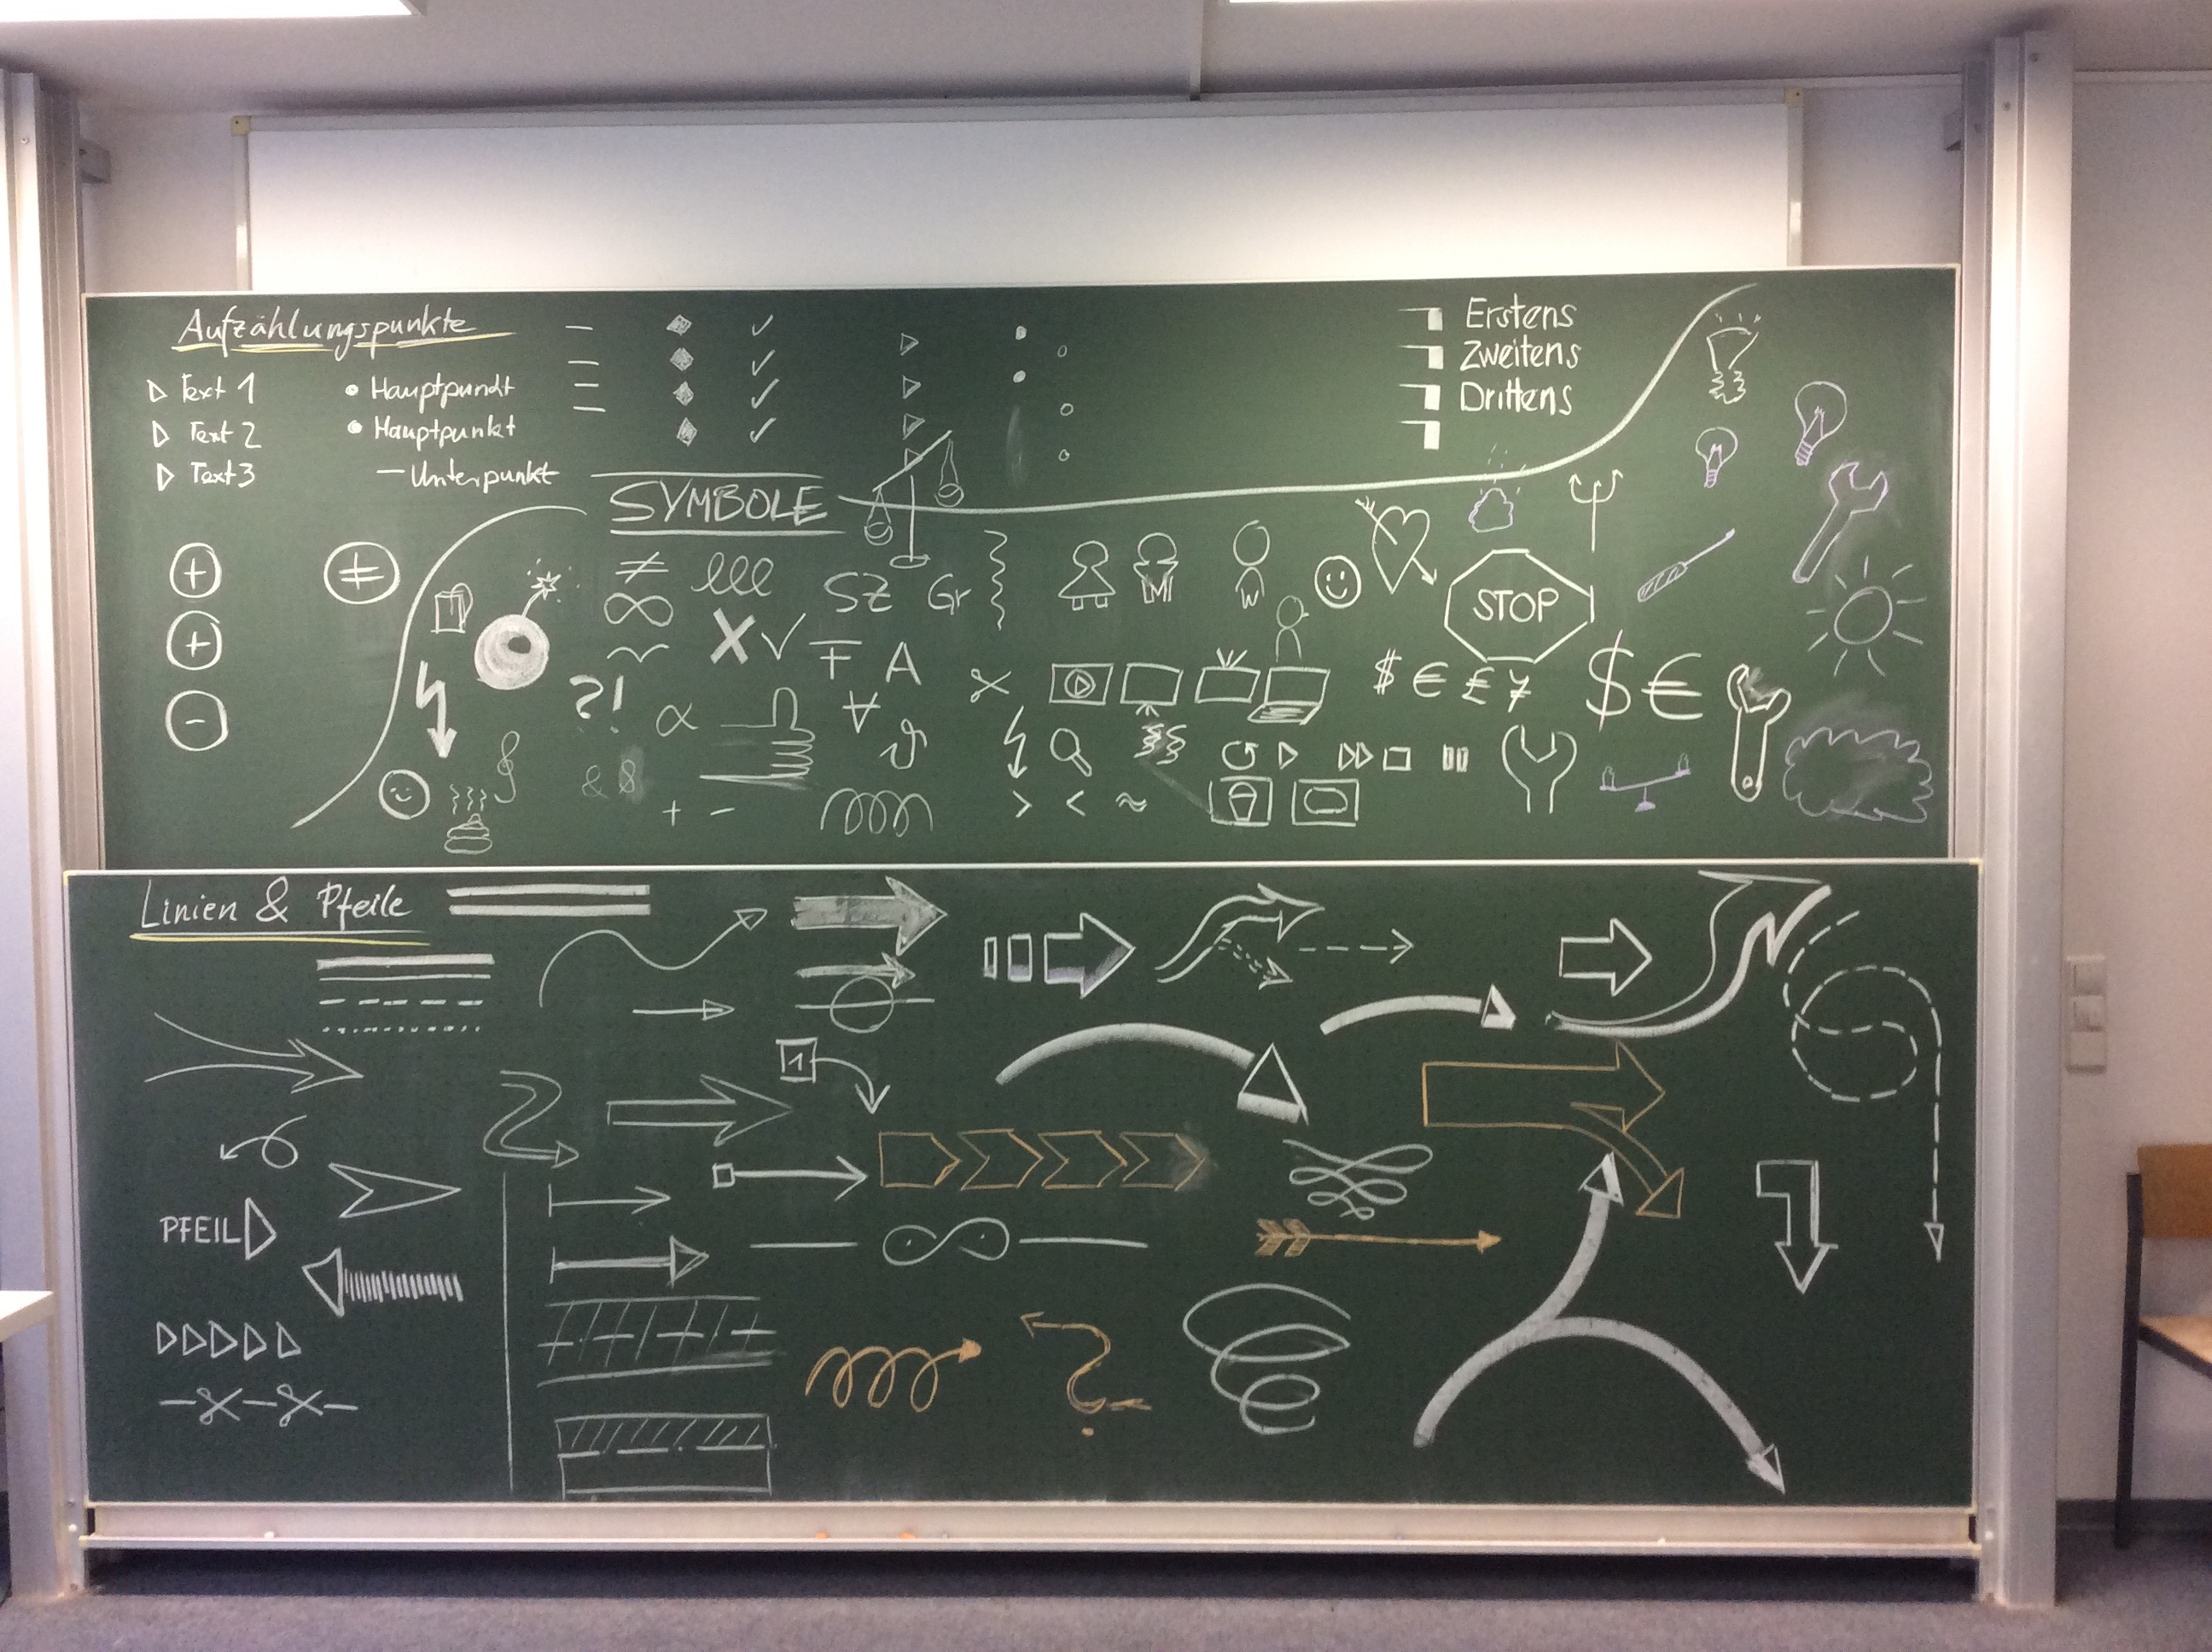 Aufzählungspunkte
Text 1
Text 2
Text 3
Hauptpundt
Hauptpunkt
— Unterpunkt
Erstens
Zweitens
Drittens
SYMBOLE
+
+
-
≠
≠
∞
SZ Gr
X ✓
F A
?!
α
∀
ϑ
& $
+ -
> < ≈
STOP
$ € £ ¥
$ €
Linien & Pfeile
1
PFEIL